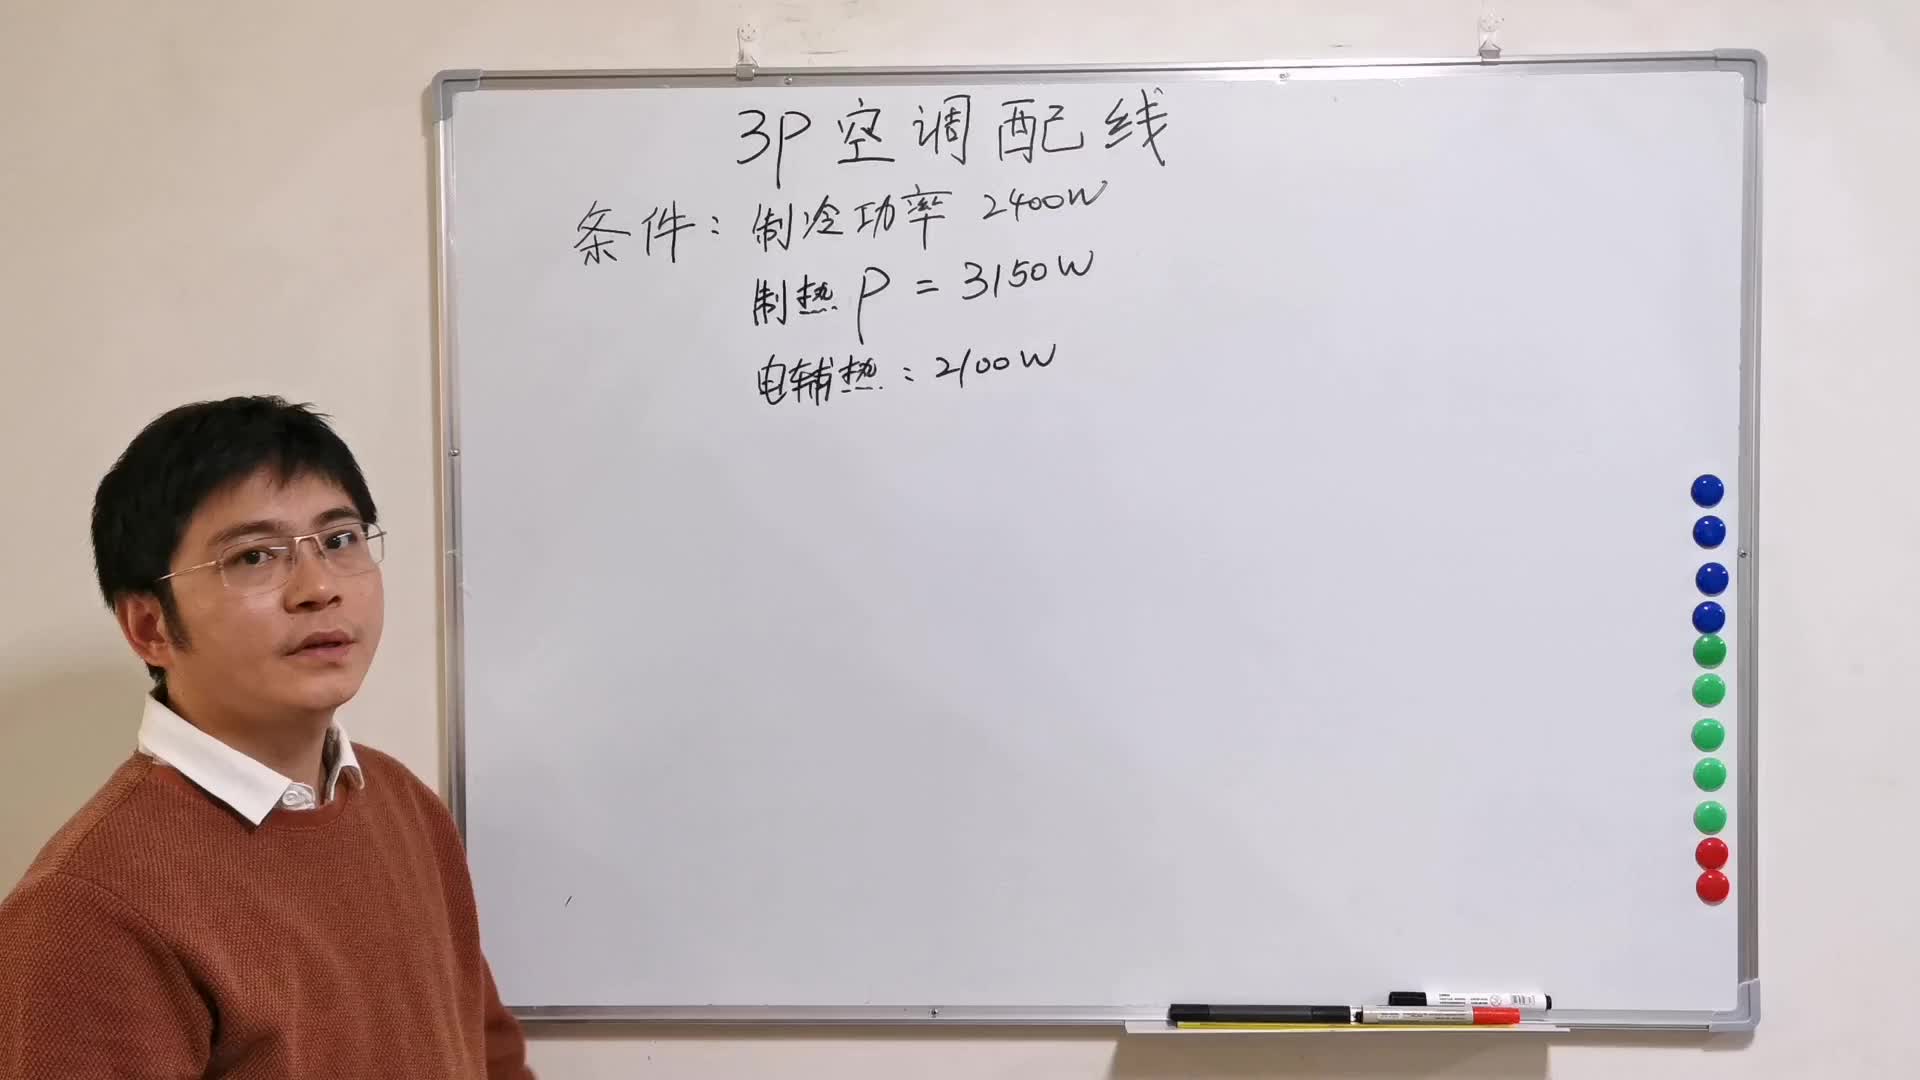 3P空调配线
条件：制冷功率 2400W
制热P = 3150W
电辅热：2100W